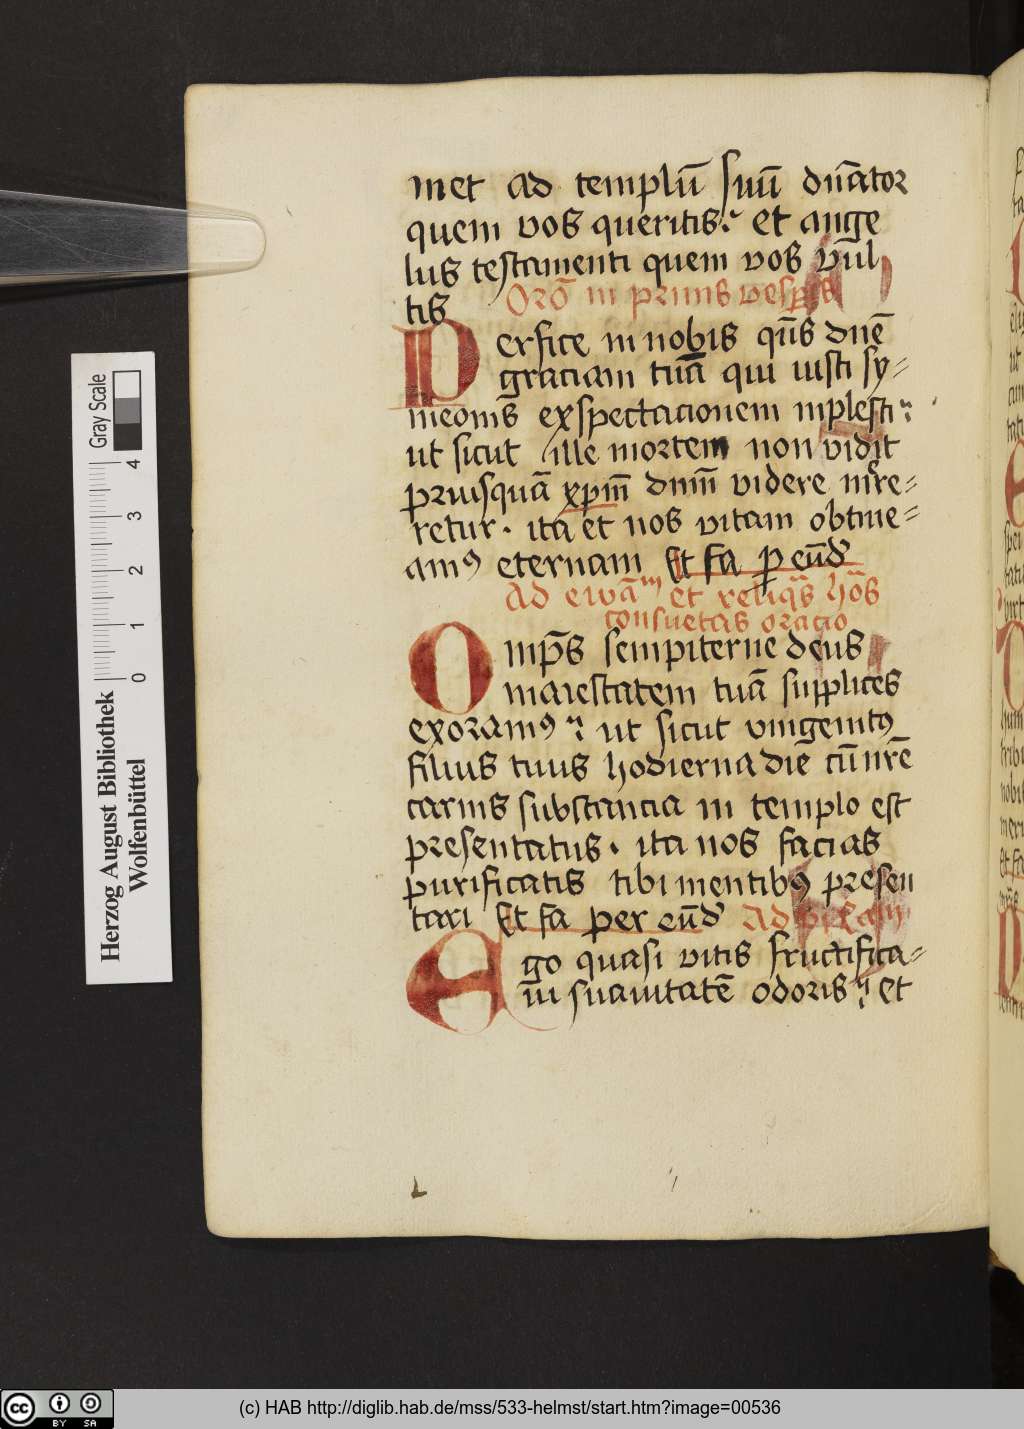 met ad templū suū dn̄ator
quem vos queritis. et ange
lus testamenti quem vos vul
tis Orō in primis vesp̄is
Perfice in nobis qs̄ dnē
graciam tuā qui iusti sy-
meonis exspectacionem inplesti
ut sicut ille mortem non vidit
priusquā xpm̄ dnm̄ videre mere-
retur. ita et nos vitam obtine-
amꝰ eternam Et fa p eūd
Ad ewāᵐ et reliqs̄ hōs
consuetas oracio
Omps̄ sempiterne deus
maiestatem tuā supplices
exoramꝰ ut sicut vnigenitꝰ
filius tuus hodierna diē cū nrē
carnis substancia in templo est
presentatus. ita nos facias
purificatis tibi mentibꝰ presen
tari Et fa per eūd Ad
Ego quasi vitis fructifica-
ui suauitatē odoris et
Herzog August Bibliothek
Wolfenbüttel
Gray Scale
0 1 2 3 4
cc BY SA
(c) HAB http://diglib.hab.de/mss/533-helmst/start.htm?image=00536